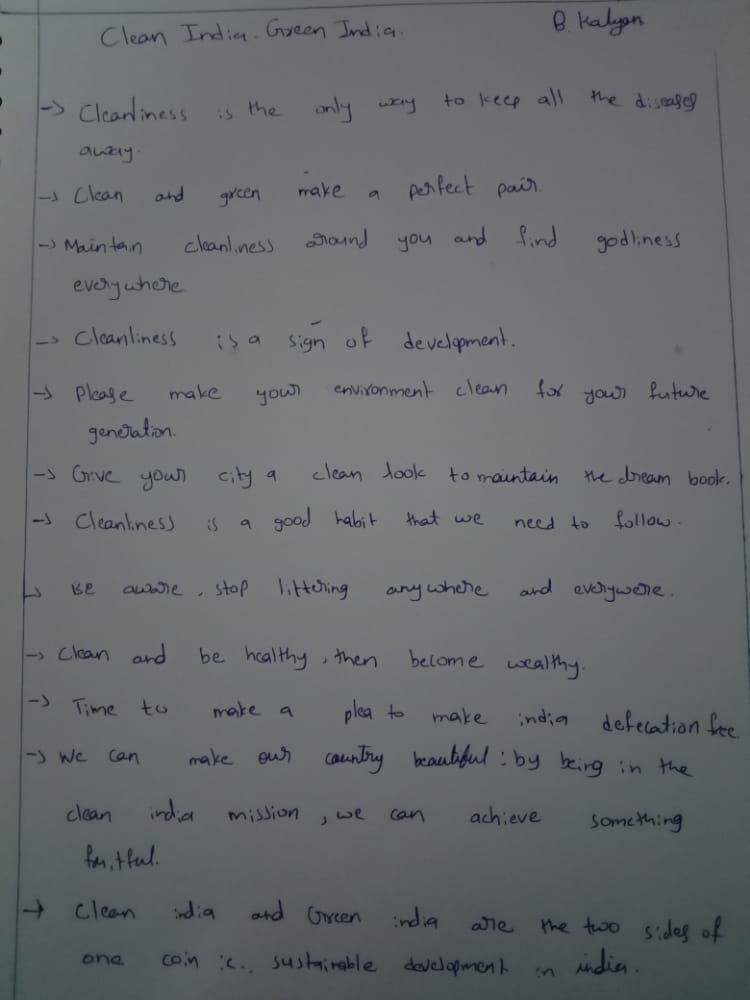 Clean India - Green India.
B. Kalyan
→ Cleanliness is the only way to keep all the diseases
away.
→ Clean and green make a perfect pair.
→ Maintain cleanliness around you and find godliness
everywhere
→ Cleanliness is a sign of development.
→ Please make your environment clean for your future
generation.
→ Give your city a clean look to maintain the dream book.
→ Cleanliness is a good habit that we need to follow.
→ Be aware, stop littering anywhere and everywere.
→ Clean and be healthy, then become wealthy.
→ Time to make a plea to make india defecation free.
→ We can make our country beautiful : by being in the
clean india mission, we can achieve something
→ Clean india and Green india are the two sides of
one coin i.e., sustainable development in india.